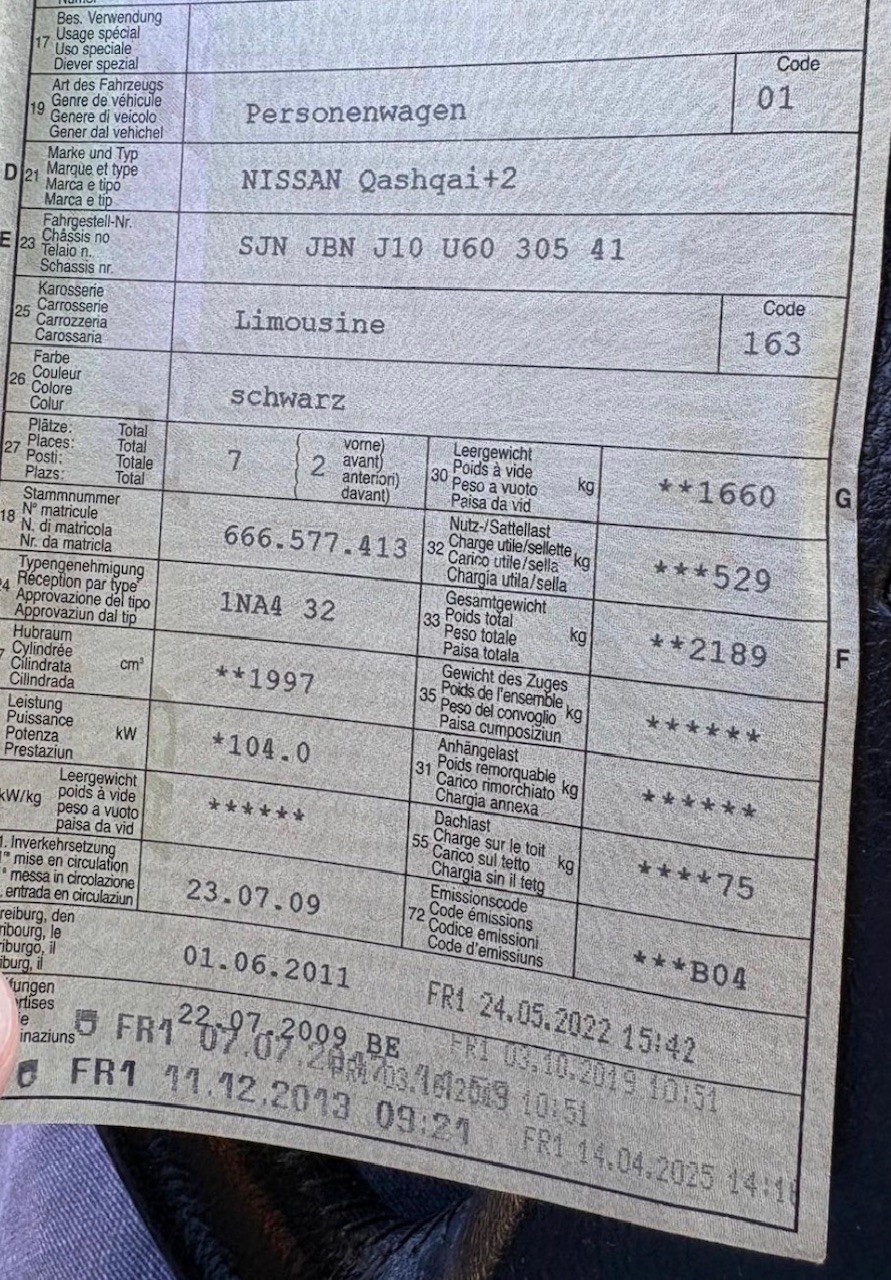 Bes. Verwendung
17 Usage spécial
Uso speciale
Diever spezial
Art des Fahrzeugs
19 Genre de véhicule
Genere di veicolo
Gener dal vehichel
Personenwagen
Code
01
Marke und Typ
D 21 Marque et type
Marca e tipo
Marca e tip
NISSAN Qashqai+2
Fahrgestell-Nr.
E 23 Châssis no
Telaio n.
Schassis nr.
SJN JBN J10 U60 305 41
Karosserie
25 Carrosserie
Carrozzeria
Carossaria
Limousine
Code
163
Farbe
26 Couleur
Colore
Colur
schwarz
Plätze: Total
27 Places: Total
Posti: Totale
Plazs: Total
7 2
vorne)
avant)
anteriori)
davant)
Leergewicht
30 Poids à vide kg
Peso a vuoto
Paisa da vid
**1660
G
Stammnummer
18 N° matricule
N. di matricola
Nr. da matricla
666.577.413
Nutz-/Sattellast
32 Charge utile/sellette kg
Carico utile/sella
Chargia utila/sella
***529
Typengenehmigung
24 Réception par type
Approvazione del tipo
Approvaziun dal tip
1NA4 32
Gesamtgewicht
33 Poids total kg
Peso totale
Paisa totala
**2189
F
Hubraum
Cylindrée cm³
Cilindrata
Cilindrada
**1997
Gewicht des Zuges
35 Poids de l'ensemble kg
Peso del convoglio
Paisa cumposiziun
******
Leistung
Puissance
Potenza kW
Prestaziun
*104.0
Anhängelast
31 Poids remorquable kg
Carico rimorchiato
Chargia annexa
******
Leergewicht
kW/kg poids à vide
peso a vuoto
paisa da vid
******
Dachlast
55 Charge sur le toit kg
Carico sul tetto
Chargia sin il tetg
****75
1. Inverkehrsetzung
mise en circulation
messa in circolazione
entrada en circulaziun
23.07.09
Emissionscode
72 Code émissions
Codice emissioni
Code d'emissiuns
***B04
reiburg, den
ribourg, le
riburgo, il
iburg, il
01.06.2011
FR1 24.05.2022 15:42
üfungen
ertises
inaziuns
22.07.2009 BE
FR1 03.10.2019 10:51
FR1 07.07.
10:51
FR1 11.12.2013 09:21
FR1 14.04.2025